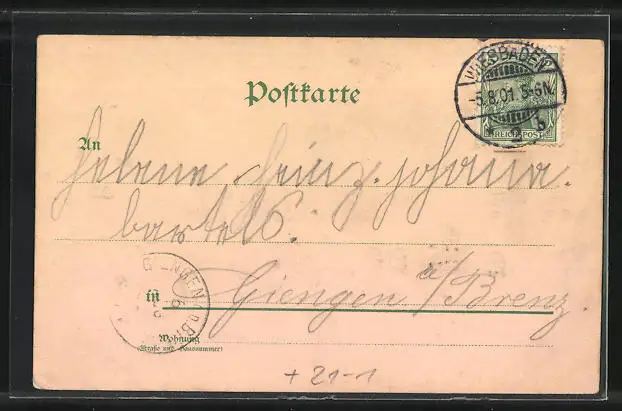 WIESBADEN
-5.8.01 5-6N.
b
REICHSPOST
Postkarte
An
Helene Heinz. Johanna.
bartels.
GIENGEN a. Br.
6
in Giengen a/Brenz
Wohnung
(Straße und Hausnummer)
+ 21-1